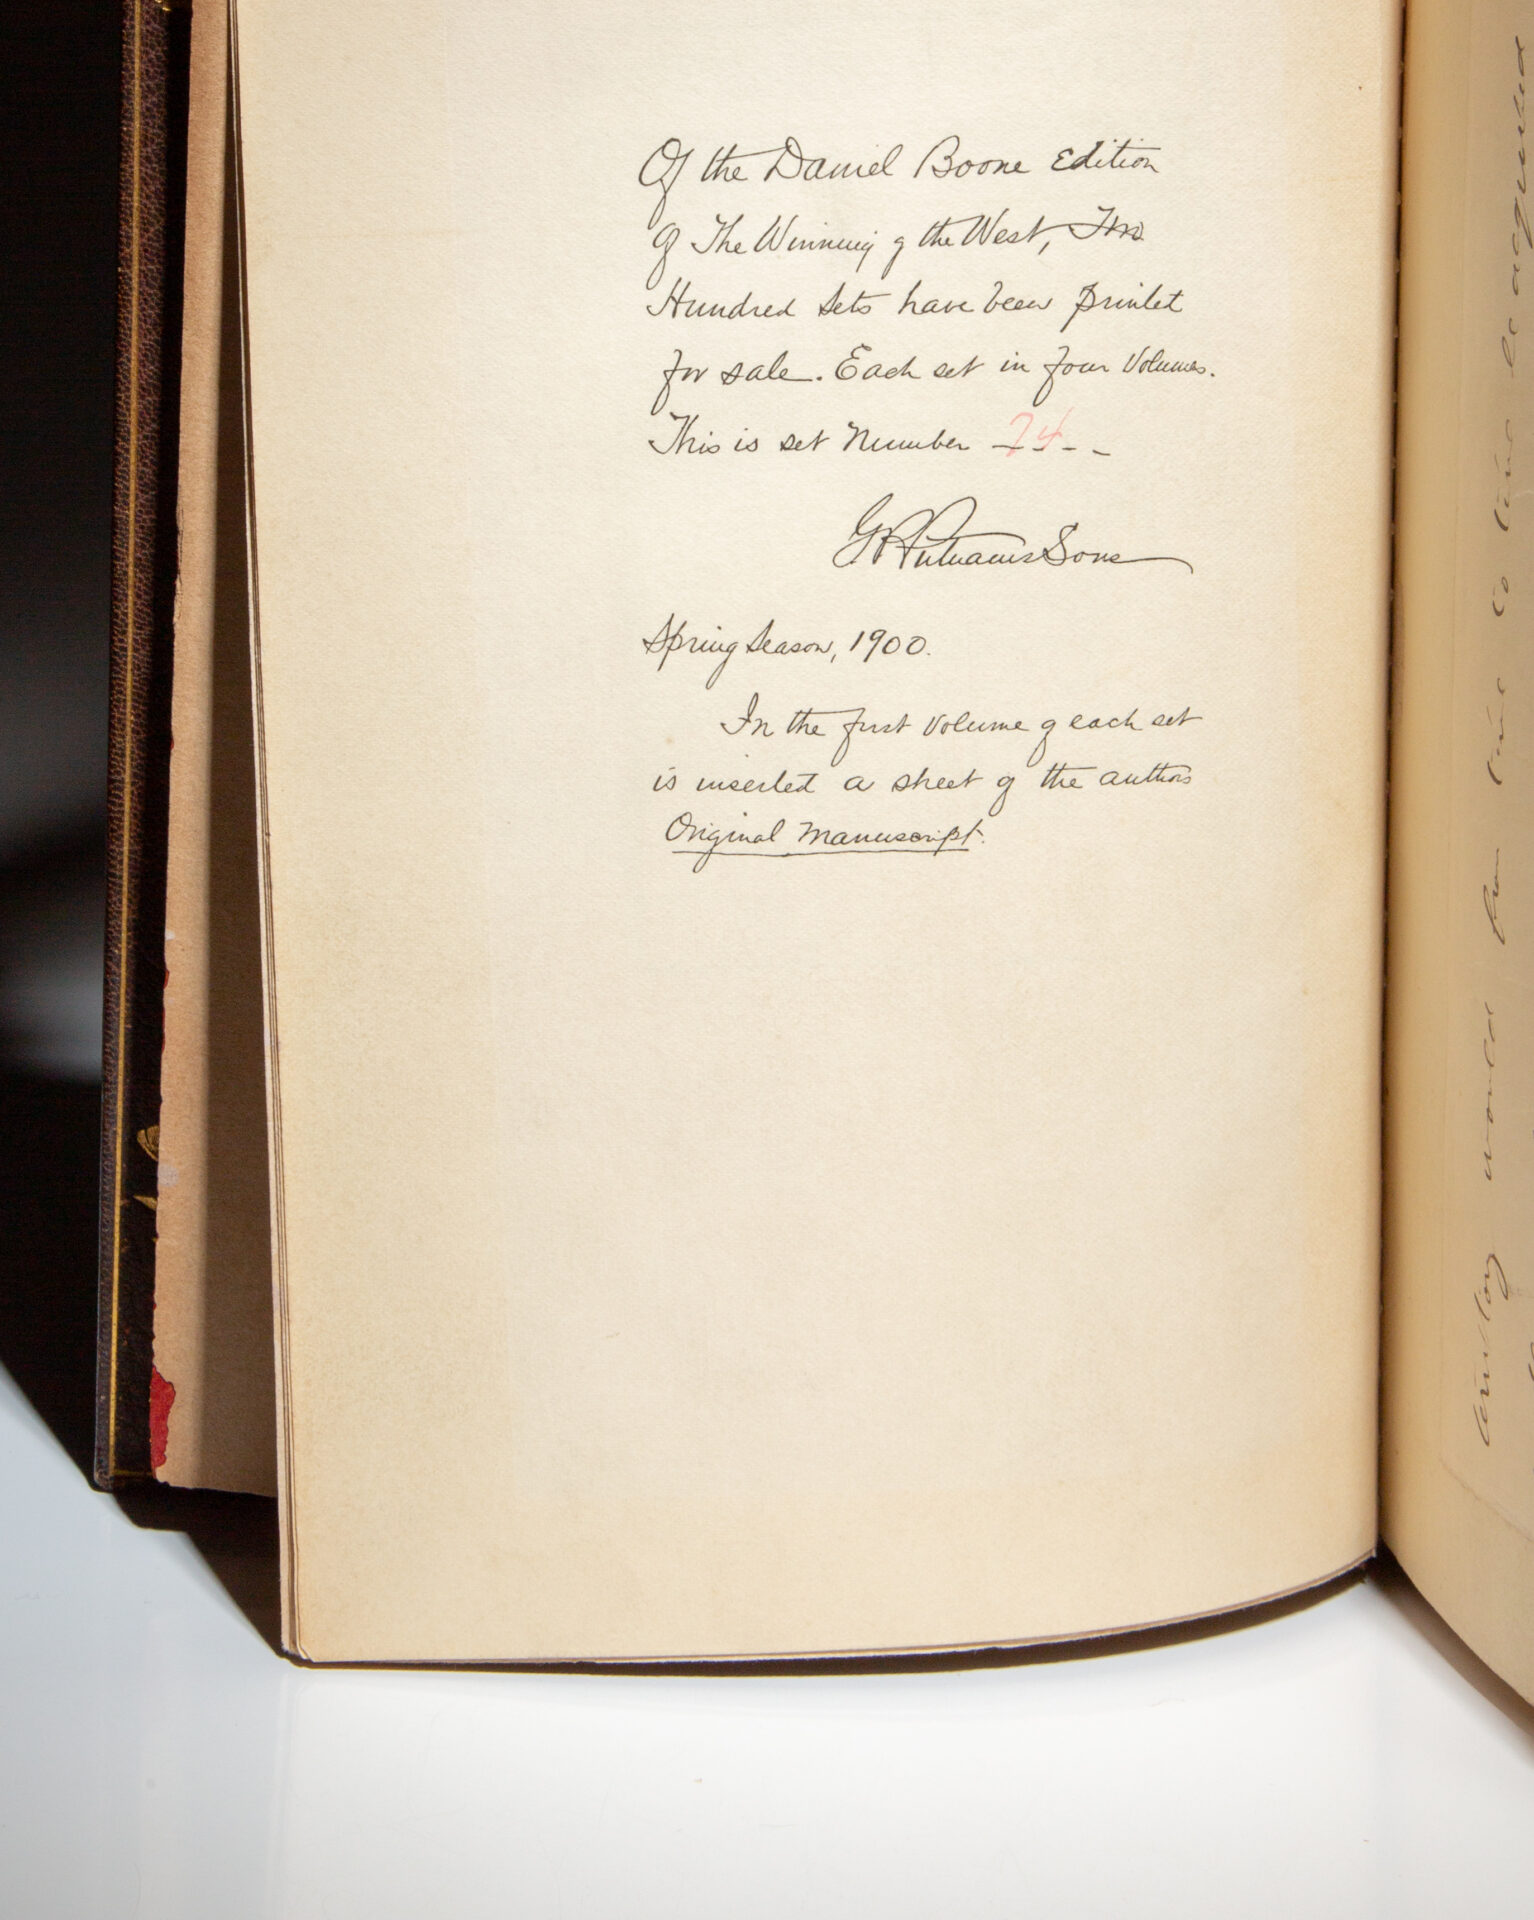 Of the Daniel Boone Edition
of The Winning of the West, Two
Hundred sets have been printed
for sale. Each set in four Volumes.
This is set Number 74
G P Putnams Sons
Spring Season, 1900.
In the first Volume of each set
is inserted a sheet of the authors
Original Manuscript.
would from time to time be acquired